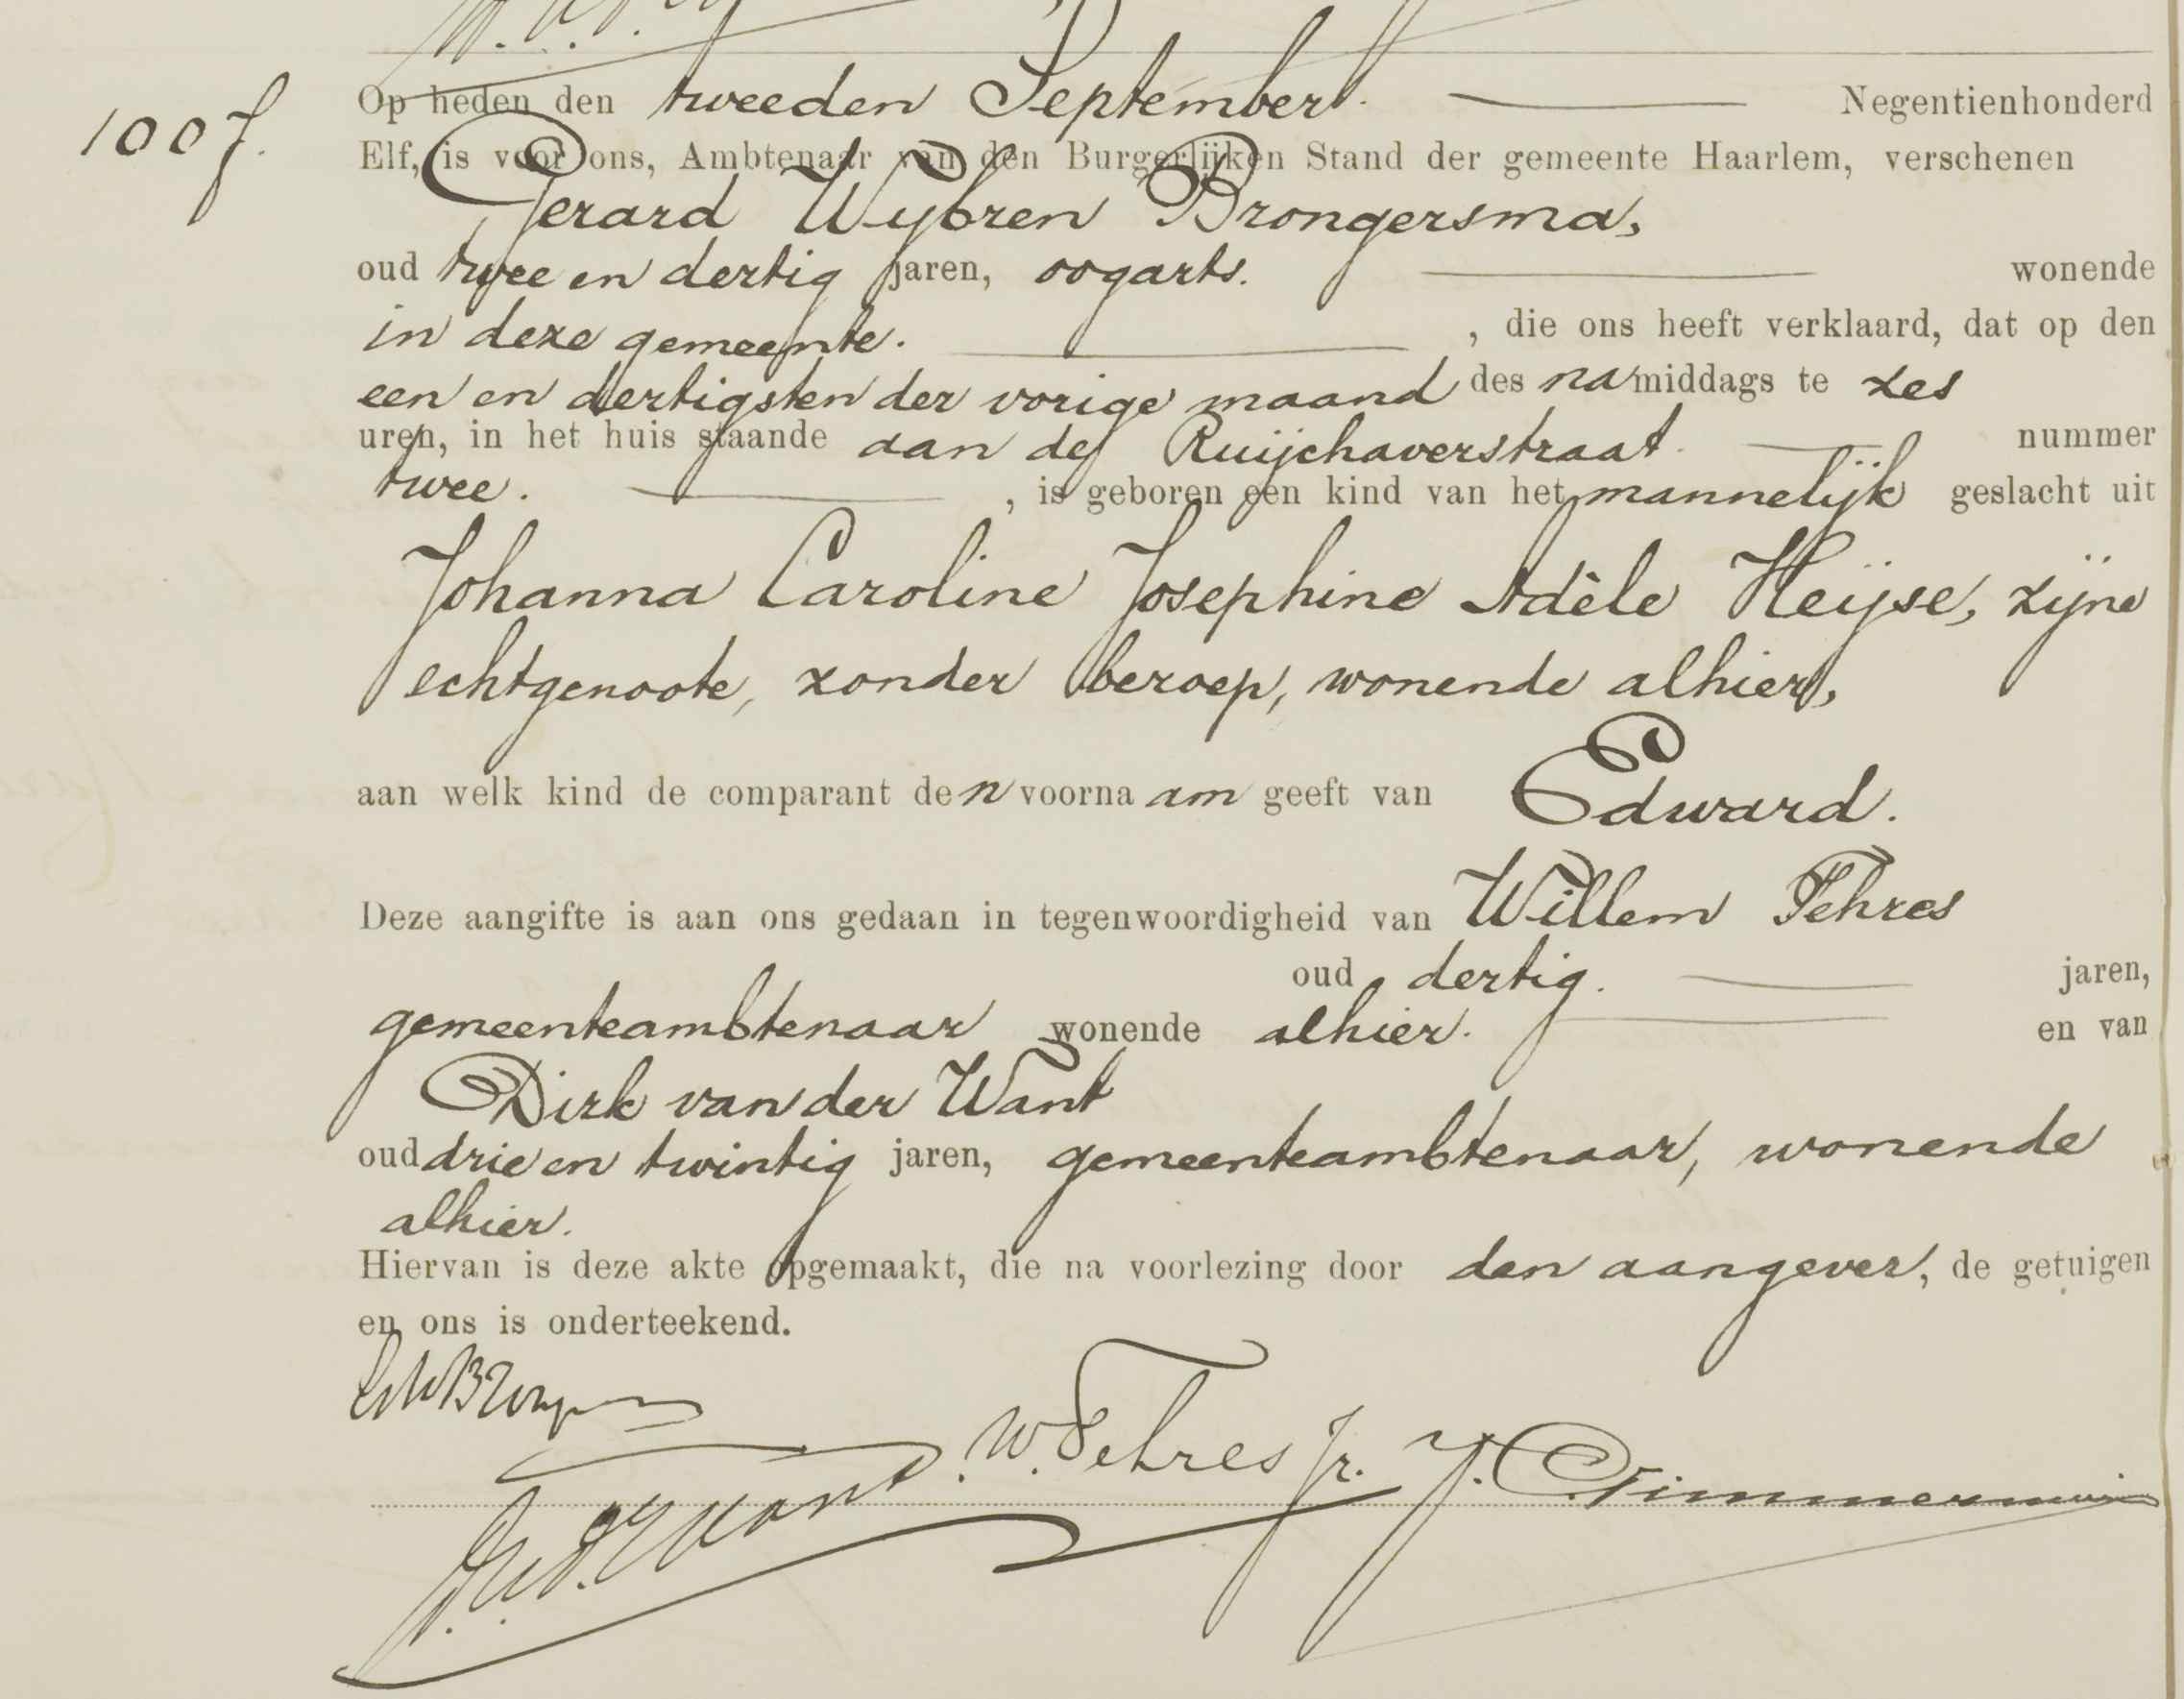 1007.
Op heden den tweeden September. Negentienhonderd
Elf, is voor ons, Ambtenaar van den Burgerlijken Stand der gemeente Haarlem, verschenen
Gerard Wybren Brongersma,
oud twee en dertig jaren, oogarts. wonende
in deze gemeente. , die ons heeft verklaard, dat op den
een en dertigsten der vorige maand des namiddags te zes
uren, in het huis staande aan de Ruijchaverstraat nummer
twee. , is geboren een kind van het mannelijk geslacht uit
Johanna Caroline Josephine Adèle Heijse, zijne
echtgenoote, zonder beroep, wonende alhier,
aan welk kind de comparant den voornaam geeft van Edward.
Deze aangifte is aan ons gedaan in tegenwoordigheid van Willem Fehres
oud dertig. jaren,
gemeenteambtenaar wonende alhier. en van
Dirk van der Want
oud drie en twintig jaren, gemeenteambtenaar, wonende
alhier.
Hiervan is deze akte opgemaakt, die na voorlezing door den aangever, de getuigen
en ons is onderteekend.
W. Fehres Jr.